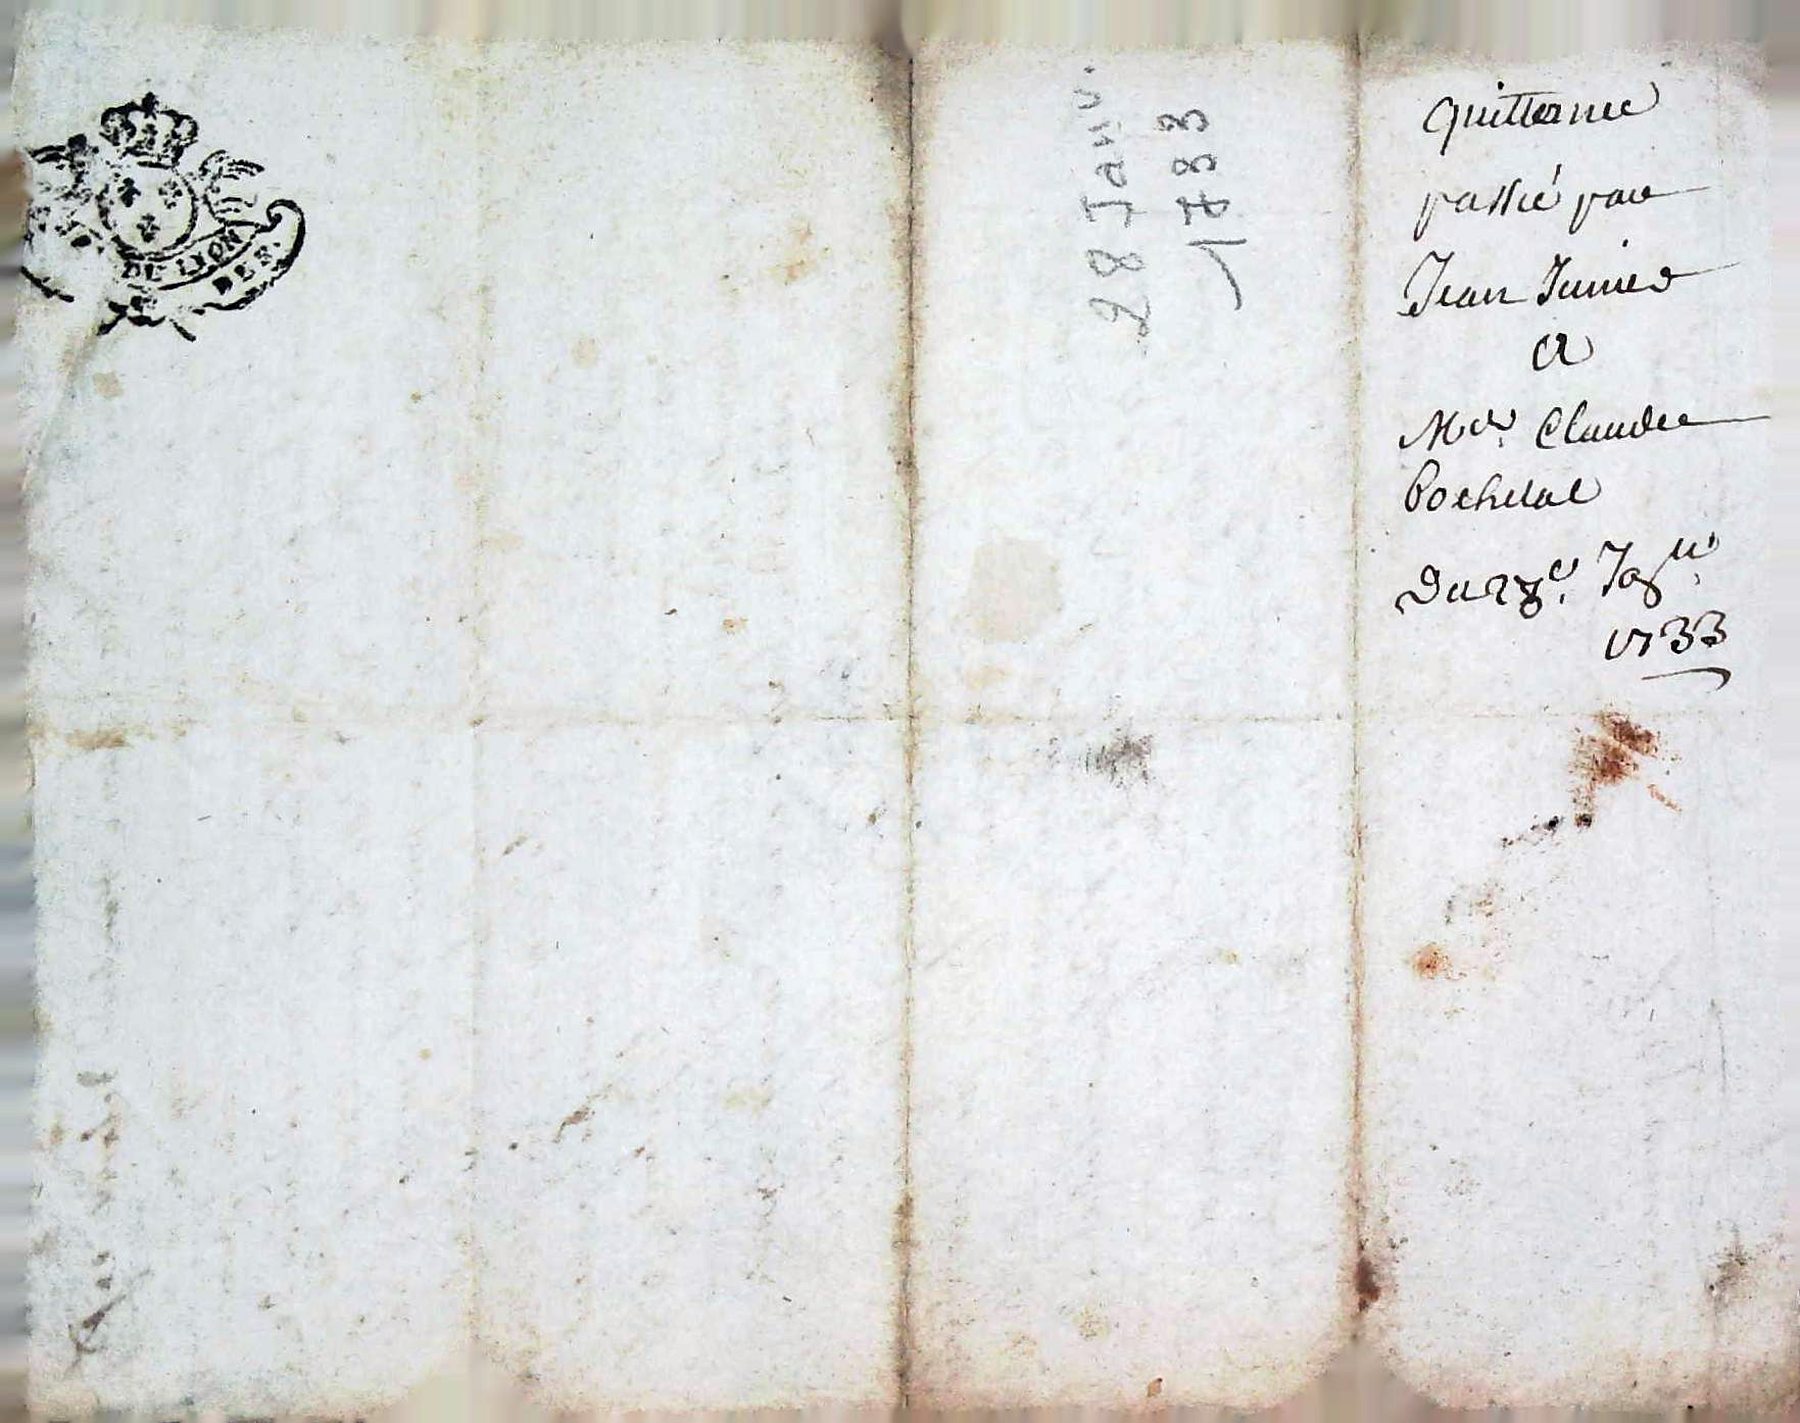 DE LION
28 Janv.
1733
Quittance
passé par
Jean Junier
A
Me. Claude
Pochelat
Du 28e. Jan
1733